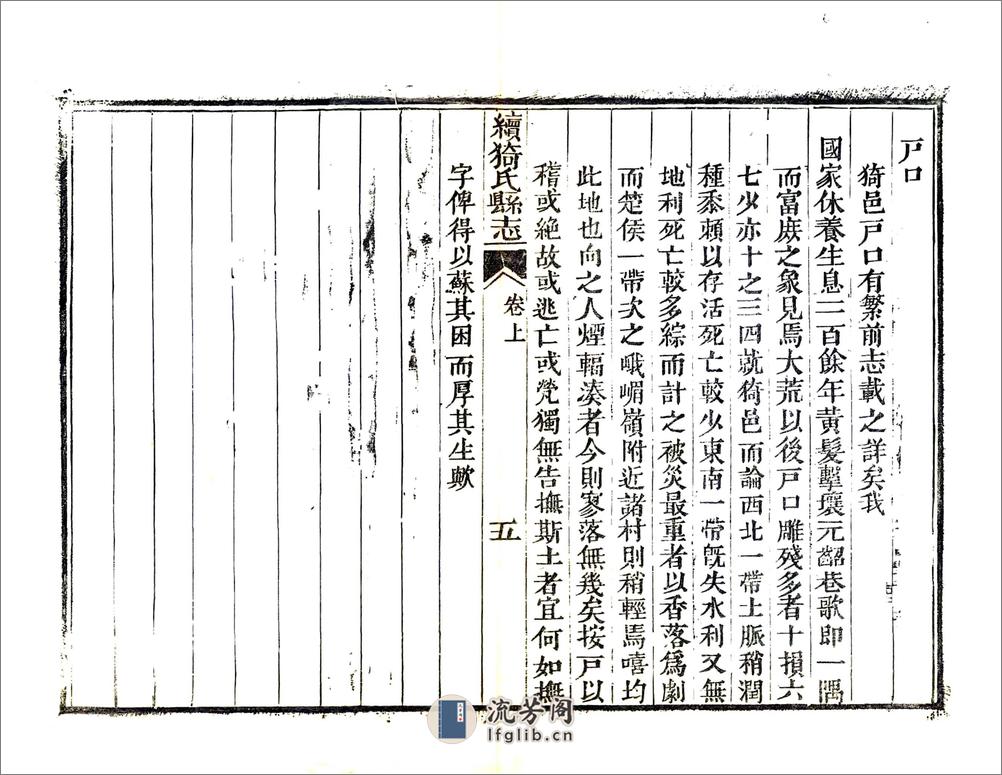 戸口
猗邑戸口有繁前志載之詳矣我
國家休養生息二百餘年黄髮擊壤元齠巷歌即一隅
而富庶之象見焉大荒以後戸口雕殘多者十損六
七少亦十之三四就猗邑而論西北一帶土脈稍潤
種黍頼以存活死亡較少東南一帶旣失水利又無
地利死亡較多綜而計之被災最重者以香落爲劇
而楚侯一帶次之峨嵋嶺附近諸村則稍輕焉嘻均
此地也向之人煙輻湊者今則寥落無幾矣按戸以
稽或絶故或逃亡或煢獨無告撫斯土者宜何如撫
字俾得以蘇其困而厚其生歟
續猗氏縣志
卷上
五
流芳阁
lfglib.cn